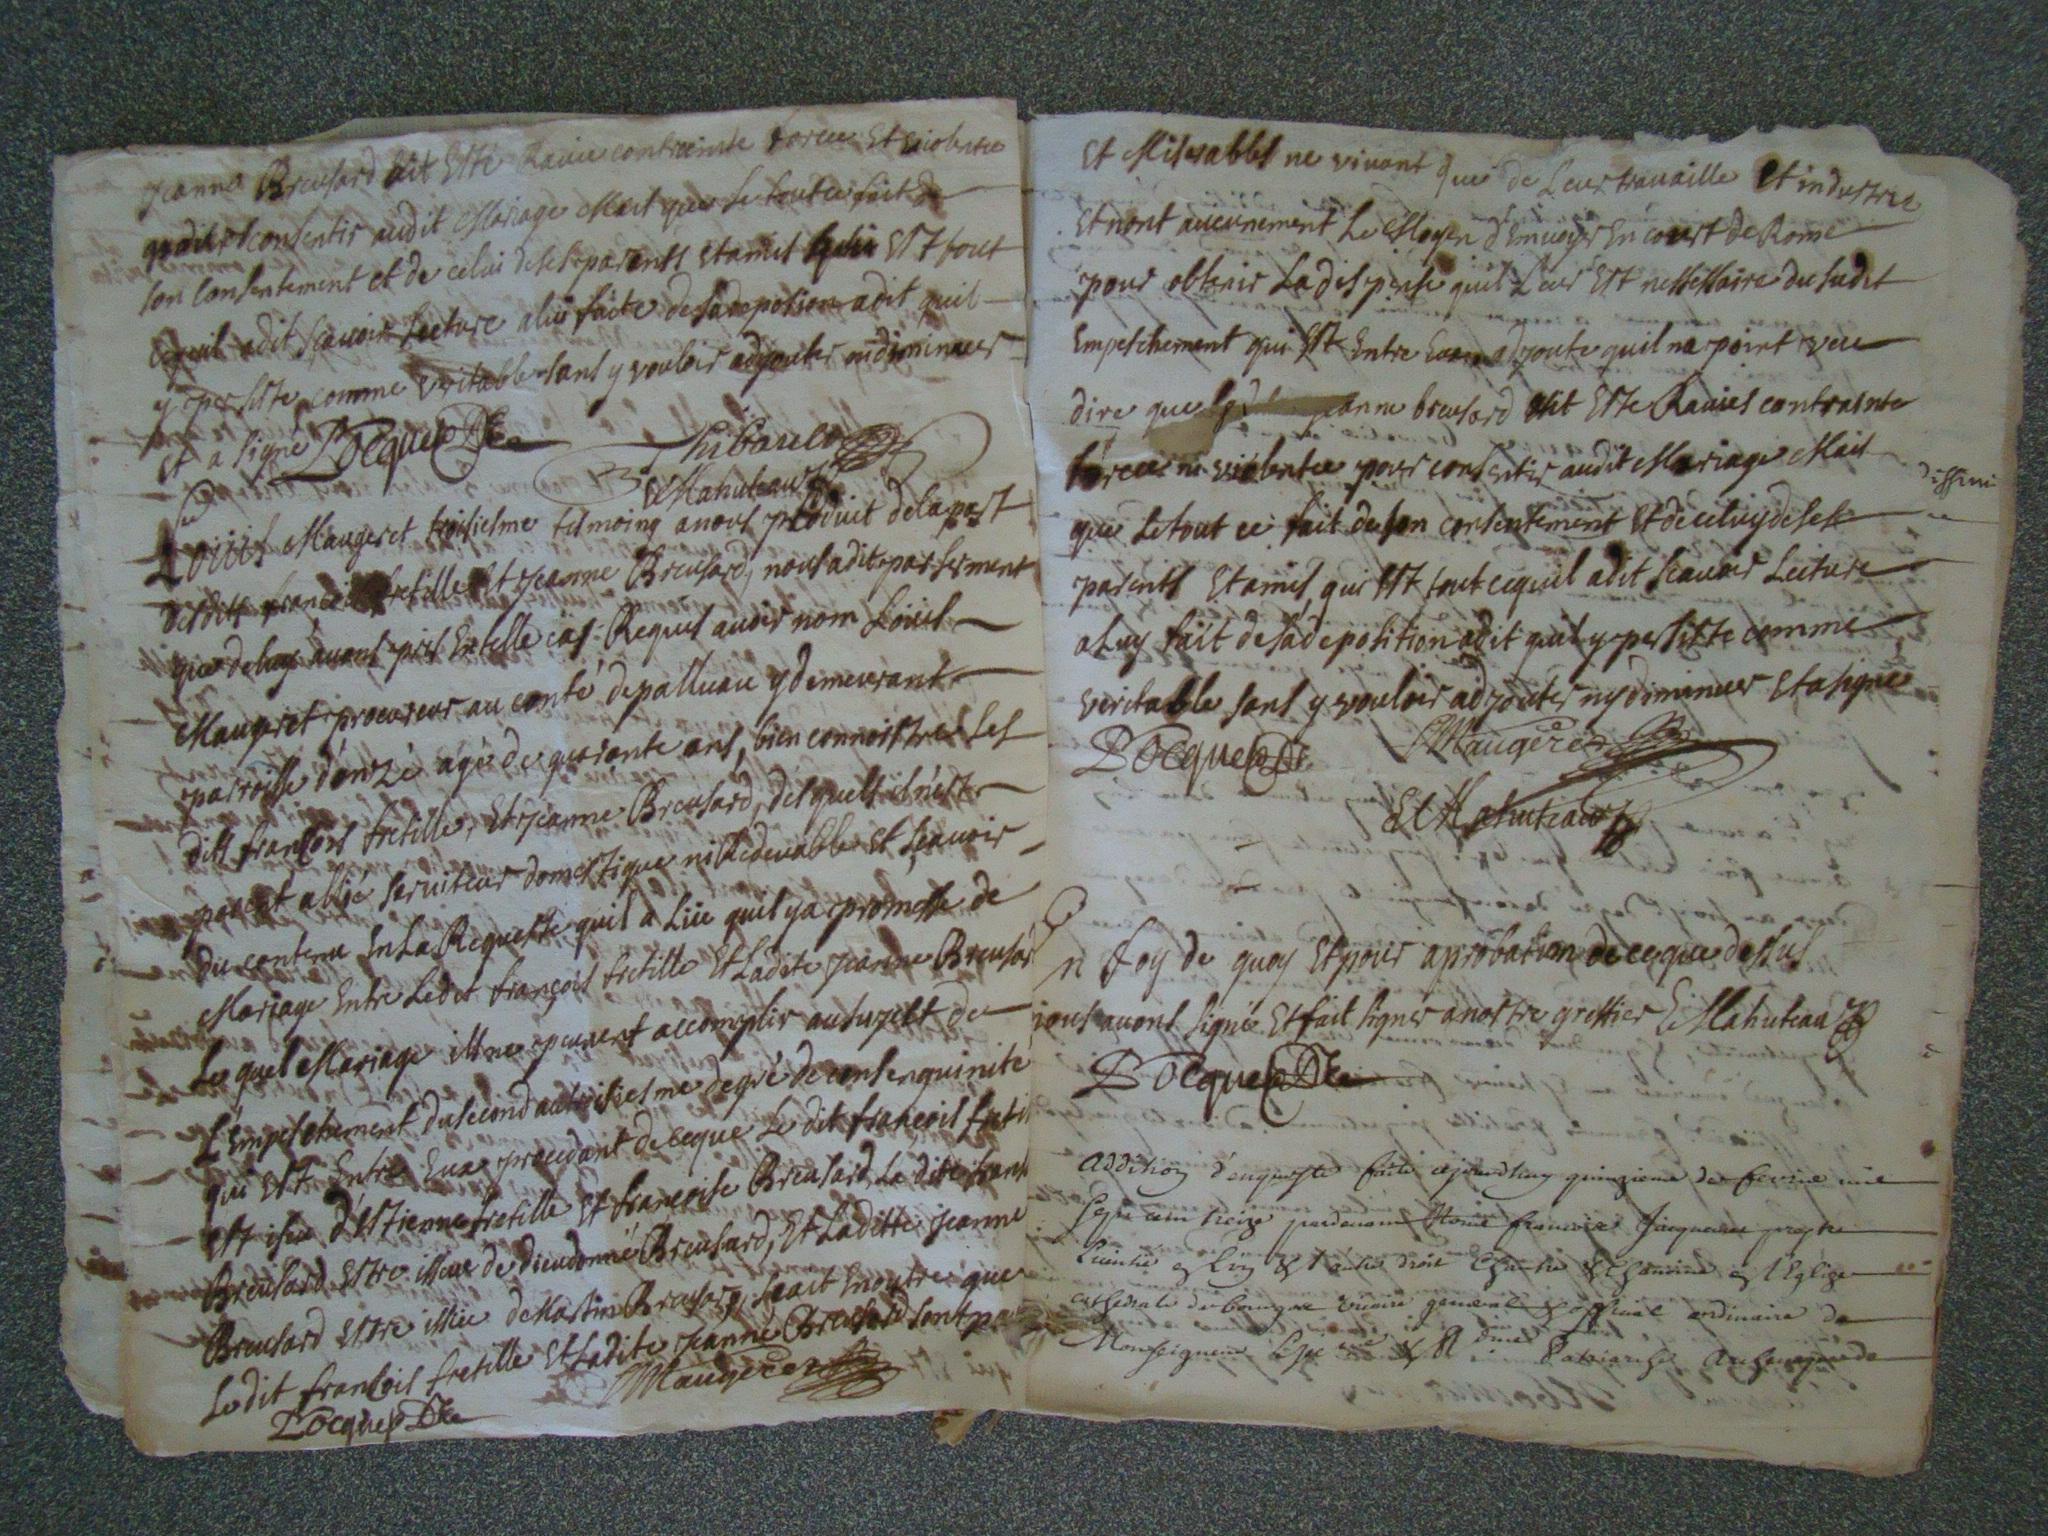 Jeanne Breusard ait Esté Ravie contreinte forcee Et violentee
consentir audit Mariage Mais que le tout ce fait de
son consentement et de celui deses parents et amis qui EST tout
cequil adit scavoir lecture alui faite desadeposion adit quil
y persiste comme veritable sans y vouloir adjouter ni diminuer
Et a signé Pocquep Thibarelo
E Mahuteau
Louis Maugeret troisiesme tesmoing anous produit delapart
desdits francois fretille Et Jeanne Breusard, nous adit par serment
que deluy avons pris Entelle cas Requis avoir nom Louis
Maugeret procureur au conté depalluau y demeurant
paroisse d'onzé agé de quarante ans, bien connoistre les
dits francois fretille, Et Jeanne Breusard, desquels il n'est
parent allié serviteur domestique ni Redevable Et scavoir
du contenu En La Requeste quil a Lüe quil ya promesse de
Mariage Entre Ledit françois fretille Et Ladite Jeanne Breusard
Le quel Mariage ils ne peuvent accomplir ausujest de
L'Empeschement dusecond autroisiesme degré de consenguinite
qui EST Entre Eux procedant de ceque Le dit francois freti
EST iseu d'EStienne fretille Et françoise Breusard, La dite frans
Breusard Estre isseue de dieudonné Breusard, Et Laditte Jeanne
Breusard Estre issüe de Martin Breusard, scait Enoutre que
Ledit francois fretille Et Ladite Jeanne Breusard sont
Pocquep Maugeret
Et Miserables ne vivant que de Leur travaille Et industrie
Et nont aucunement Le Moyen d'Envoyer En court de Rome
pour obtenir La dispense quil Leur Est nessessaire dusudit
Empeschement qui Est Entre Eux adjoute quil na point veu
dire que Jeanne breusard ait Este Ravies contrainte
forcee ni violentee pour consentir audit Mariage Mais
que Letout ce fait de son consentement Et de celuy de ses
parents Et amis qui EST tout cequil adit scavoir Lecture
a Luy fait desadeposition adit quil y persiste comme
veritable sans y vouloir adjouter ny diminuer Et a signé
Pocquep Maugeret
E Mahuteau
n foy de quoy Et pour aprobation de ceque dessus
nous avons signé Et fait signer anostre greffier E Mahuteau
Pocquep
Addition d'enqueste faite cejourdhuy quinzieme de fevrier mil
sept cent treize pardevant francois Jacquemet prestre
Licintié en L'un & l'autre droit Chantre & Chanoine en l'Eglise
cathedrale de bourges vicaire general & official ordinaire de
Monseigneur Patriarche Archevesque de